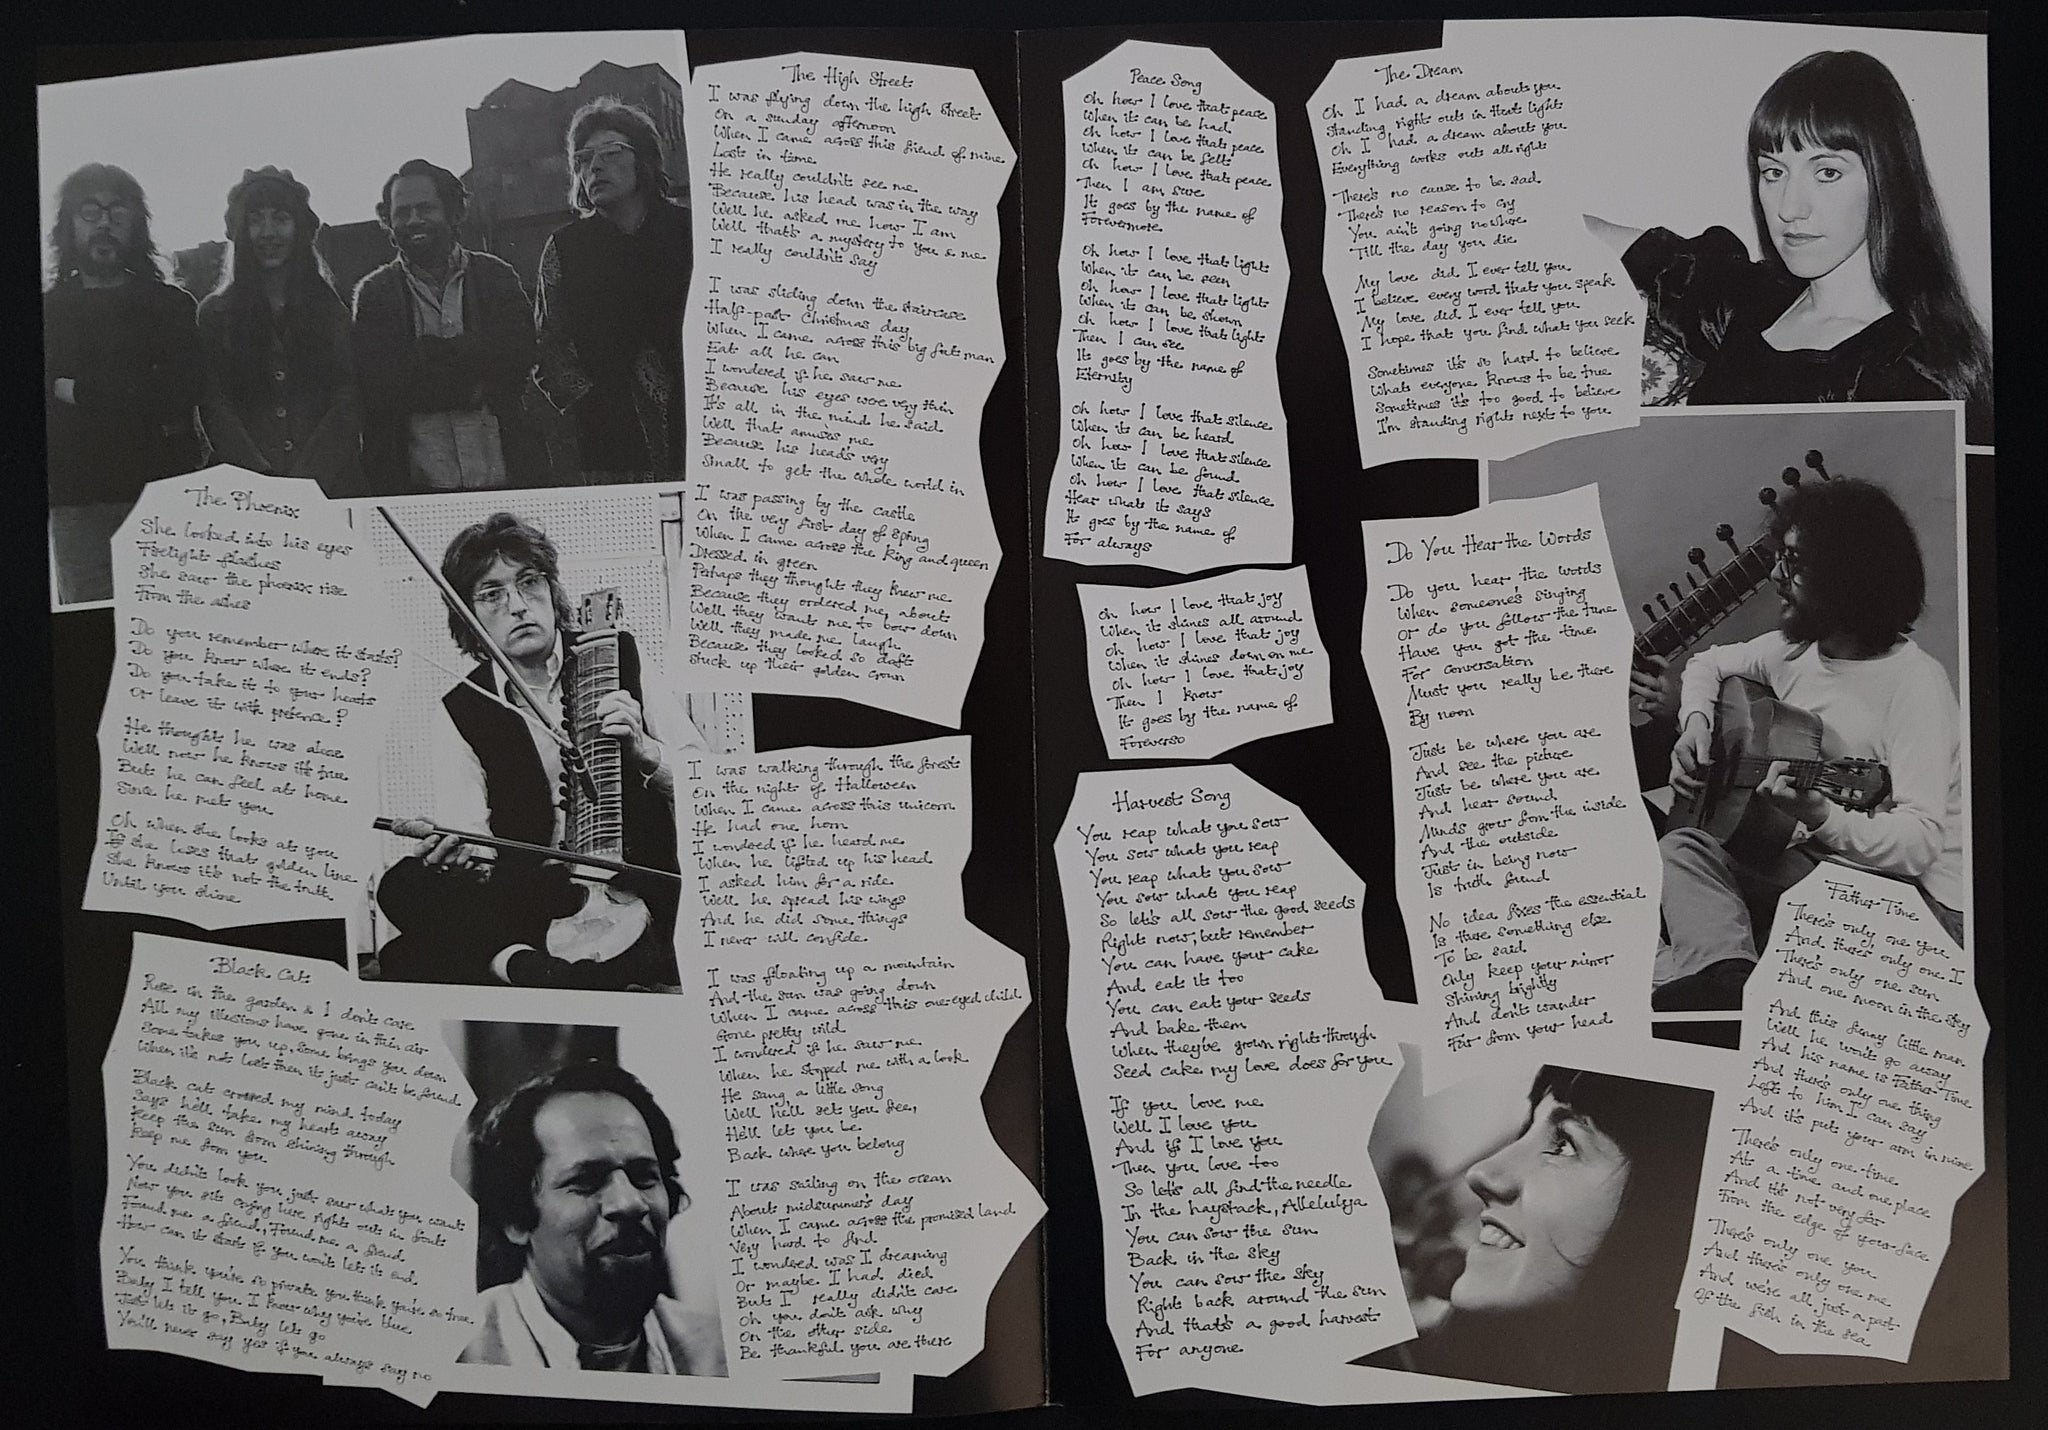 The Phoenix
She looked into his eyes
Firelight flashes
She saw the phoenix rise
From the ashes
Do you remember where it starts?
Do you know where it ends?
Do you take it to your hearts
Or leave it with pretence?
He thought he was alone
Well now he knows it's true
But he can feel at home
Since he met you
Oh when she looks at you
If she uses that golden line
She knows it's not the truth
Until you shine
Black Cat
Rose in the garden & I don't care
All my illusions have gone in thin air
Some takes you up, some brings you down
When it's not lost then it just can't be found
Black cat crossed my mind today
Says he'll take my heart away
Keep the sun from shining through
Keep me from you
You didn't look you just saw what you want
Now you sit crying here right out in front
Found me a friend, Found me a friend
How can it start if you won't let it end
You think you're so private you think you're so true
Baby I tell you I know why you're blue
Just let it go, Baby let go
You'll never say yes if you always say no
The High Street
I was flying down the high street
On a sunday afternoon
When I came across this friend of mine
Lost in time
He really couldn't see me
Because his head was in the way
Well he asked me how I am
Well that's a mystery to you & me
I really couldn't say
I was sliding down the staircase
Half-past Christmas day
When I came across this big fat man
Eat all he can
I wondered if he saw me
Because his eyes were very thin
It's all in the mind he said
Well that amuses me
Because his head's very
Small to get the whole world in
I was passing by the castle
On the very first day of spring
When I came across the King and queen
Dressed in green
Perhaps they thought they knew me
Because they ordered me about
Well they want me to bow down
Well they made me laugh
Because they looked so daft
Stuck up their golden crown
I was walking through the forest
On the night of Halloween
When I came across this unicorn
He had one horn
I wondered if he heard me
When he lifted up his head
I asked him for a ride
Well he spread his wings
And he did some things
I never will confide
I was floating up a mountain
And the sun was going down
When I came across this one-eyed child
Gone pretty wild
I wondered if he saw me
When he stopped me with a look
He sang a little song
Well he'll set you free,
He'll let you be
Back where you belong
I was sailing on the ocean
About midsummer's day
When I came across the promised land
Very hard to find
I wondered was I dreaming
Or maybe I had died
But I really didn't care
Oh you don't ask why
On the other side
Be thankful you are there
Peace Song
Oh how I love that peace
When it can be had
Oh how I love that peace
When it can be felt
Oh how I love that peace
Then I am sure
It goes by the name of
Forevermore
Oh how I love that light
When it can be seen
Oh how I love that light
When it can be shown
Oh how I love that light
Then I can see
It goes by the name of
Eternity
Oh how I love that silence
When it can be heard
Oh how I love that silence
When it can be found
Oh how I love that silence
Hear what it says
It goes by the name of
For always
Oh how I love that joy
When it shines all around
Oh how I love that joy
When it shines down on me
Oh how I love that joy
Then I know
It goes by the name of
Foreverso
Harvest Song
You reap what you sow
You sow what you reap
You reap what you sow
You sow what you reap
So let's all sow the good seeds
Right now, but remember
You can have your cake
And eat it too
You can eat your seeds
And bake them
When they've grown right through
Seed cake my love does for you
If you love me
Well I love you
And if I love you
Then you love too
So let's all find the needle
In the haystack, Alleluya
You can sow the sun
Back in the sky
You can sow the sky
Right back around the sun
And that's a good harvest
For anyone
The Dream
Oh I had a dream about you
Standing right out in that light
Oh I had a dream about you
Everything works out all right
There's no cause to be sad
There's no reason to cry
You ain't going nowhere
Till the day you die
My love did I ever tell you
I believe every word that you speak
My love did I ever tell you
I hope that you find what you seek
Sometimes it's so hard to believe
Whats everyone knows to be true
Sometimes it's too good to believe
I'm standing right next to you
Do You Hear the Words
Do you hear the words
When someone's singing
Or do you follow the tune
Have you got the time
For conversation
Must you really be there
By noon
Just be where you are
And see the picture
Just be where you are
And hear sound
Minds grow from the inside
And the outside
Just in being now
Is truth found
No idea fixes the essential
Is there something else
To be said
Only keep your mirror
Shining brightly
And don't wander
Far from your head
Father Time
There's only one you
And there's only one I
There's only one sun
And one moon in the sky
And this funny little man
Well he won't go away
And his name is Father Time
And there's only one thing
Left to him I can say
And it's put your arm in mine
There's only one time
At a time and one place
And it's not very far
From the edge of your face
There's only one you
And there's only one me
And we're all just a part
Of the fish in the sea